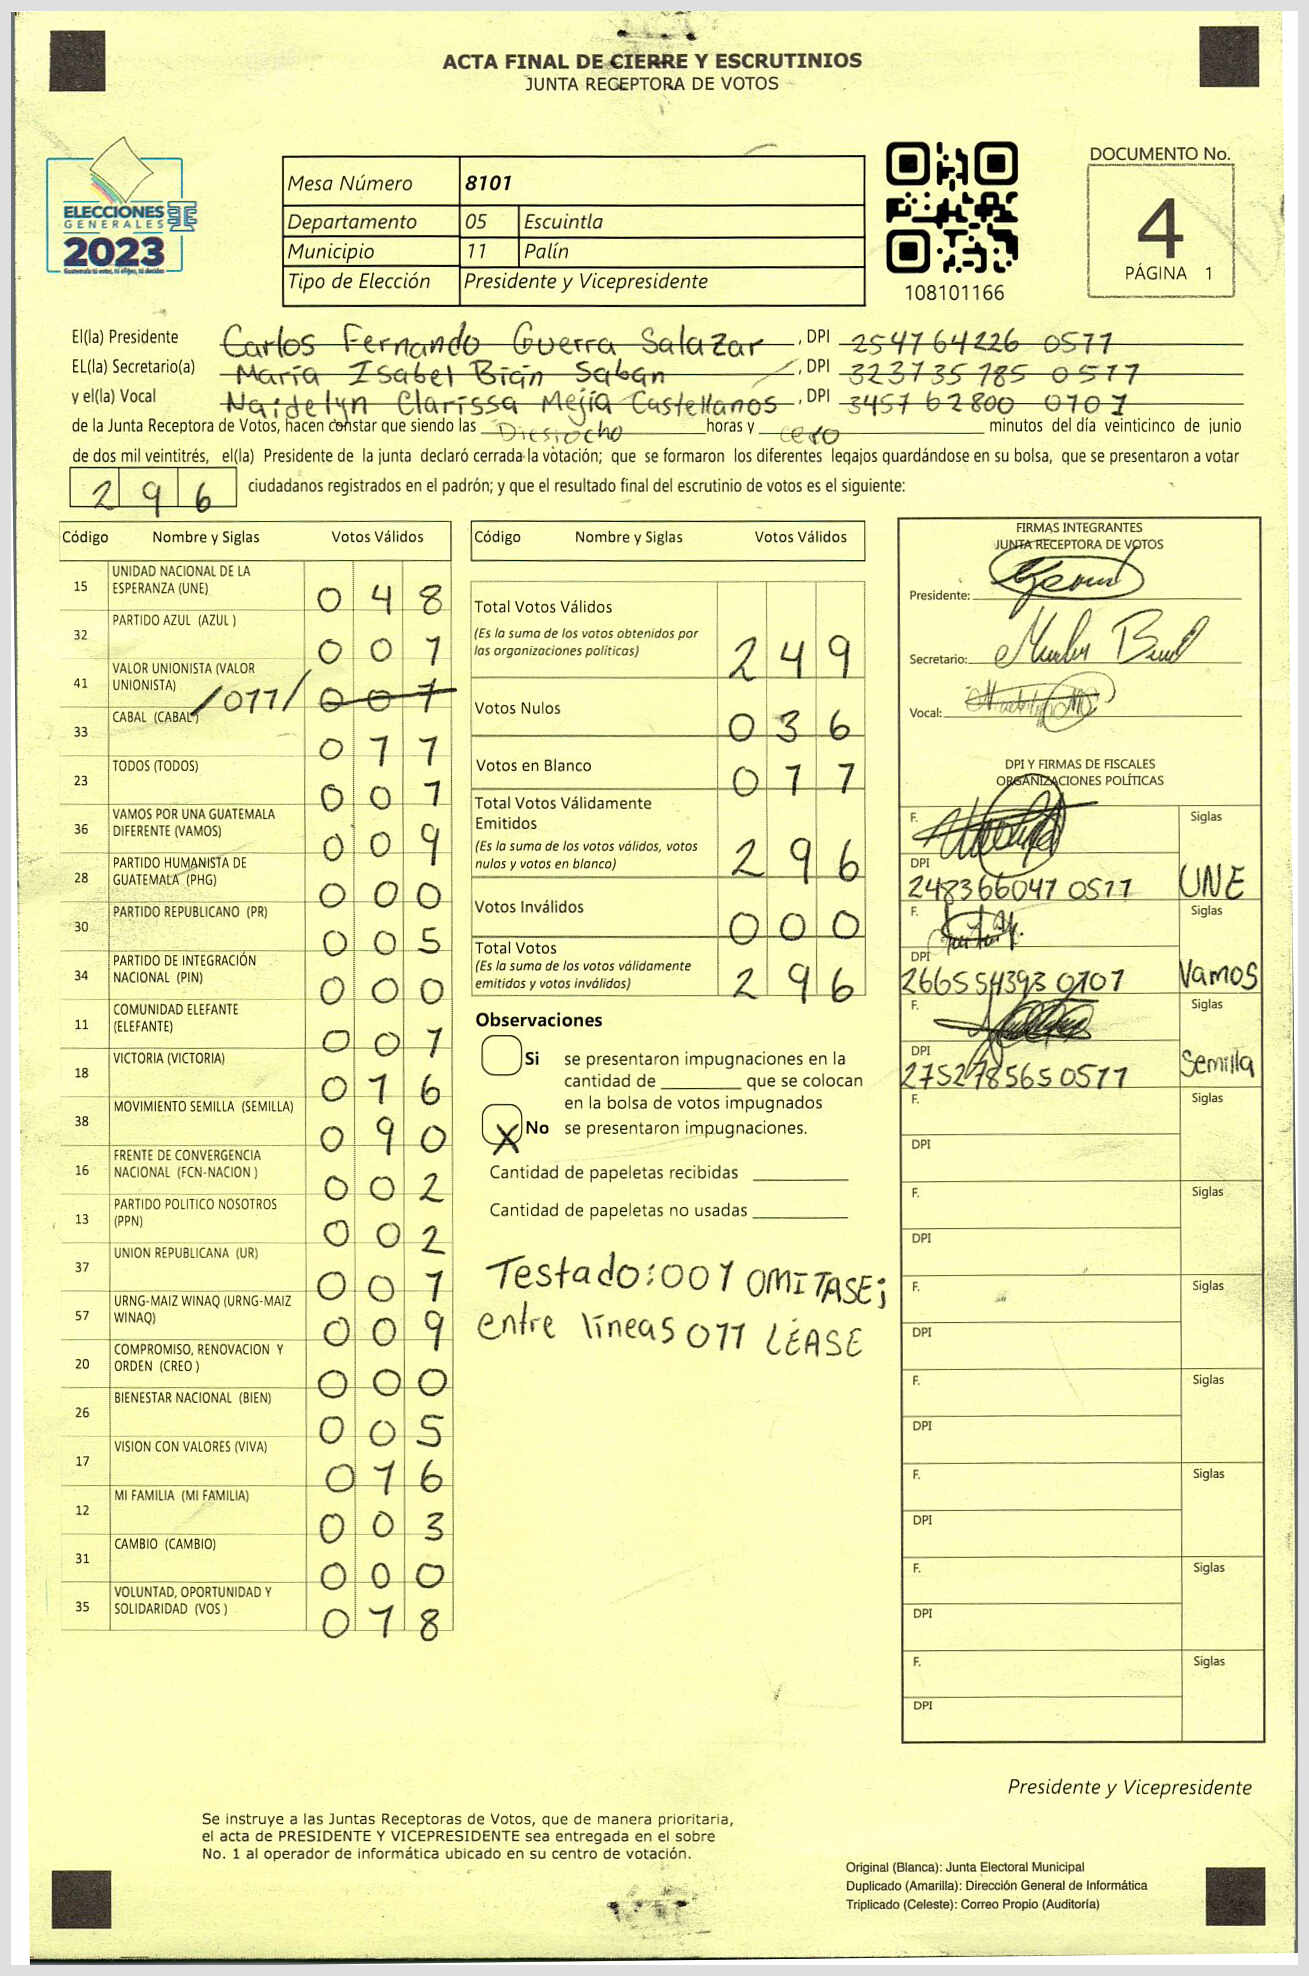 ACTA FINAL DE CIERRE Y ESCRUTINIOS
JUNTA RECEPTORA DE VOTOS
ELECCIONES
GENERALES
2023
Guatemala tú votas, tú eliges, tú decides
Mesa Número 8101
Departamento 05 Escuintla
Municipio 11 Palín
Tipo de Elección Presidente y Vicepresidente
108101166
DOCUMENTO No.
4
PÁGINA 1
El(la) Presidente Carlos Fernando Guerra Salazar, DPI 254764226 0511
EL(la) Secretario(a) María Isabel Bian Saban, DPI 0511
y el(la) Vocal Naidelyn Clarissa Mejía Castellanos, DPI
de la Junta Receptora de Votos, hacen constar que siendo las Diesiocho horas y cero minutos del día veinticinco de junio
de dos mil veintitrés, el(la) Presidente de la junta declaró cerrada la votación; que se formaron los diferentes legajos guardándose en su bolsa, que se presentaron a votar
296 ciudadanos registrados en el padrón; y que el resultado final del escrutinio de votos es el siguiente:
Código Nombre y Siglas Votos Válidos
15 UNIDAD NACIONAL DE LA
ESPERANZA (UNE) 0 4 8
32 PARTIDO AZUL (AZUL ) 0 0 1
41 VALOR UNIONISTA (VALOR
UNIONISTA) /011/ 0 0 1
33 CABAL (CABAL) 0 1 1
23 TODOS (TODOS) 0 0 1
36 VAMOS POR UNA GUATEMALA
DIFERENTE (VAMOS) 0 0 9
28 PARTIDO HUMANISTA DE
GUATEMALA (PHG) 0 0 0
30 PARTIDO REPUBLICANO (PR) 0 0 5
34 PARTIDO DE INTEGRACIÓN
NACIONAL (PIN) 0 0 0
11 COMUNIDAD ELEFANTE
(ELEFANTE) 0 0 1
18 VICTORIA (VICTORIA) 0 1 6
38 MOVIMIENTO SEMILLA (SEMILLA) 0 9 0
16 FRENTE DE CONVERGENCIA
NACIONAL (FCN-NACION ) 0 0 2
13 PARTIDO POLITICO NOSOTROS
(PPN) 0 0 2
37 UNION REPUBLICANA (UR) 0 0 1
57 URNG-MAIZ WINAQ (URNG-MAIZ
WINAQ) 0 0 9
20 COMPROMISO, RENOVACION Y
ORDEN (CREO ) 0 0 0
26 BIENESTAR NACIONAL (BIEN) 0 0 5
17 VISION CON VALORES (VIVA) 0 1 6
12 MI FAMILIA (MI FAMILIA) 0 0 3
31 CAMBIO (CAMBIO) 0 0 0
35 VOLUNTAD, OPORTUNIDAD Y
SOLIDARIDAD (VOS ) 0 1 8
Código Nombre y Siglas Votos Válidos
Total Votos Válidos
(Es la suma de los votos obtenidos por
las organizaciones políticas) 2 4 9
Votos Nulos 0 3 6
Votos en Blanco 0 1 1
Total Votos Válidamente
Emitidos
(Es la suma de los votos válidos, votos
nulos y votos en blanco) 2 9 6
Votos Inválidos 0 0 0
Total Votos
(Es la suma de los votos válidamente
emitidos y votos inválidos) 2 9 6
Observaciones
Si se presentaron impugnaciones en la
cantidad de ________ que se colocan
en la bolsa de votos impugnados
X No se presentaron impugnaciones.
Cantidad de papeletas recibidas
Cantidad de papeletas no usadas
Testado: 001 OMITASE;
entre líneas 011 LÉASE
FIRMAS INTEGRANTES
JUNTA RECEPTORA DE VOTOS
Presidente:
Secretario:
Vocal:
DPI Y FIRMAS DE FISCALES
ORGANIZACIONES POLÍTICAS
F. Siglas
DPI
248366047 0511 UNE
F. Siglas
DPI
Vamos
F. Siglas
DPI
Semilla
F. Siglas
DPI
F. Siglas
DPI
F. Siglas
DPI
F. Siglas
DPI
F. Siglas
DPI
F. Siglas
DPI
F. Siglas
DPI
Presidente y Vicepresidente
Se instruye a las Juntas Receptoras de Votos, que de manera prioritaria,
el acta de PRESIDENTE Y VICEPRESIDENTE sea entregada en el sobre
No. 1 al operador de informática ubicado en su centro de votación.
Original (Blanca): Junta Electoral Municipal
Duplicado (Amarilla): Dirección General de Informática
Triplicado (Celeste): Correo Propio (Auditoría)